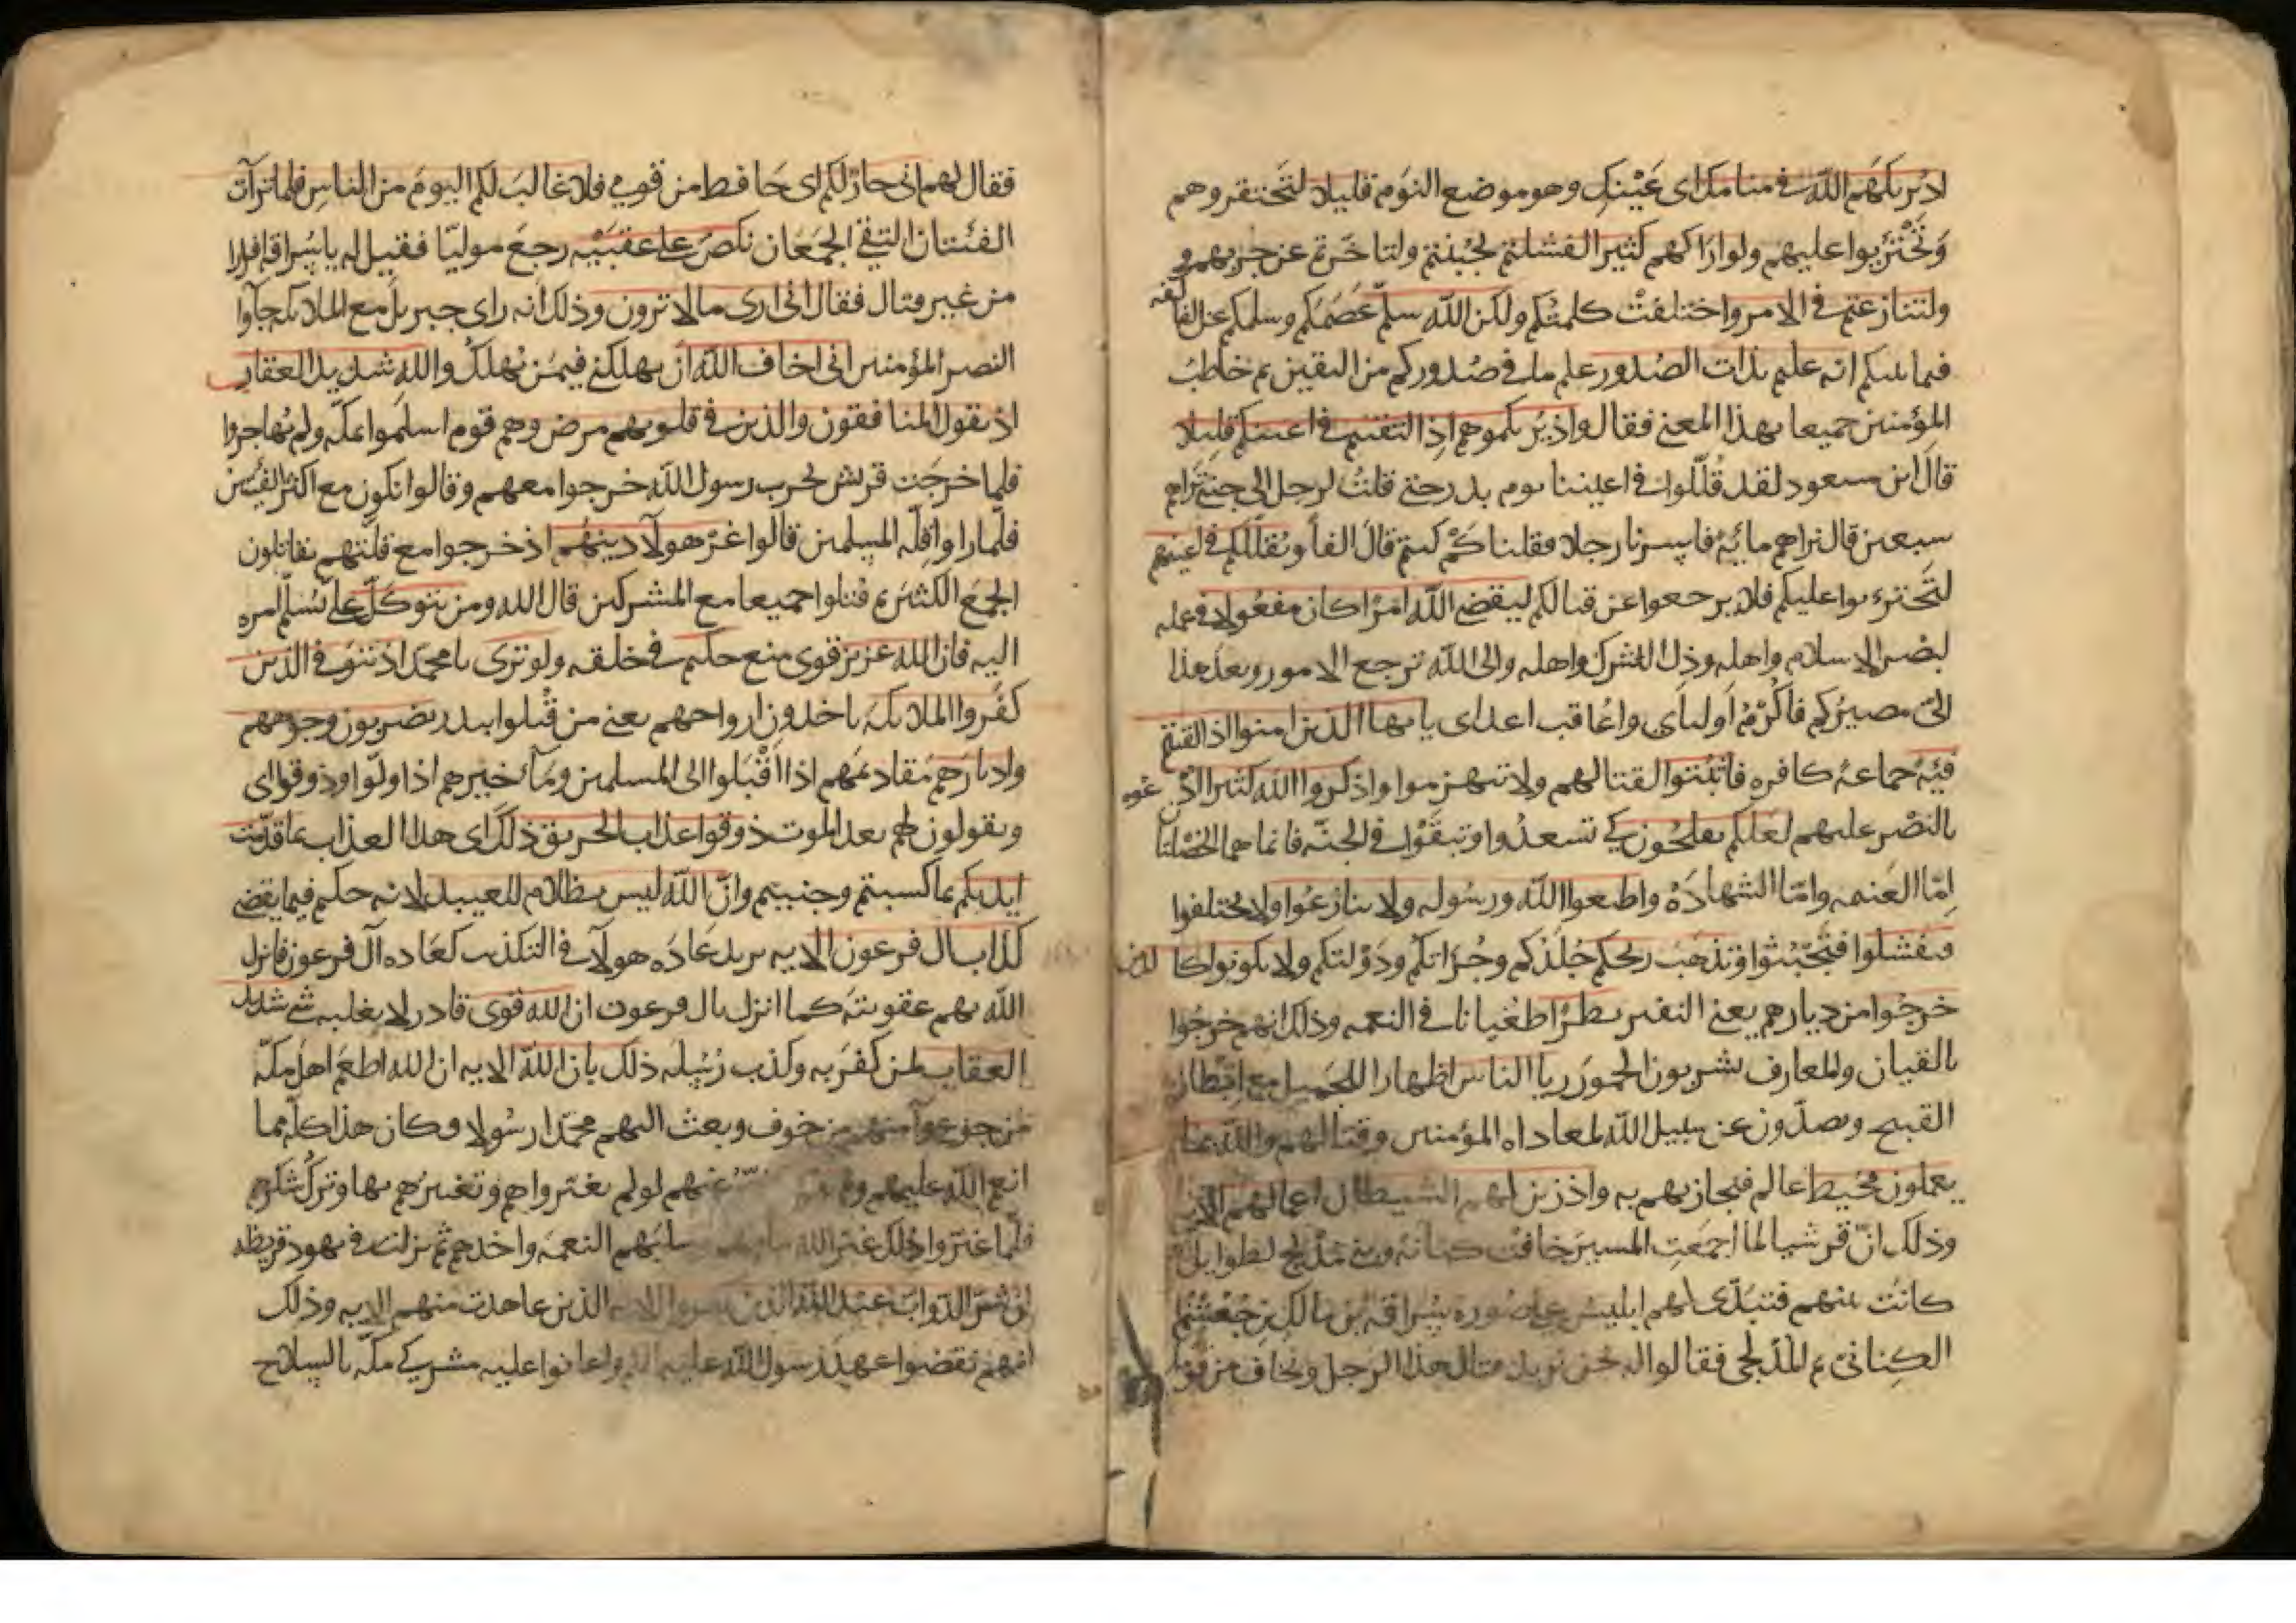 اذ يريكهم الله في منامك اي عينك وهو موضع النوم قليلا لتحتقروهم
وتجترؤا عليهم ولو اراكهم كثيرا لفشلتم لجبنتم ولتاخرتم عن حربهم
ولتنازعتم في الامر واختلفت كلمتكم ولكن الله سلم عصمكم وسلمكم عن المخالفه
فيما بينكم انه عليم بذات الصدور علم ما في صدوركم من اليقين ثم خاطب
المؤمنين جميعا بهذا المعنى فقال واذ يريكموهم اذ التقيتم في اعينكم قليلا
قال ابن مسعود لقد قللوا في اعيننا يوم بدر حتى قلت لرجل الى جنبي تراهم
سبعين قال نراهم مائة فاسرنا رجلا فقلنا كم كنتم قال الفا ويقللكم في اعينهم
لتجترءوا عليكم فلا يرجعوا عن قتالكم ليقضي الله امرا كان مفعولا في علمه
بنصر الاسلام واهله وذل الشرك واهله والى الله ترجع الامور وبعد هذا
الي مصيركم فاكرم اوليائي واعاقب اعدائي يا ايها الذين امنوا اذا لقيتم
فئة جماعة كافره فاثبتوا لقتالهم ولا تنهزموا واذكروا الله كثيرا ادعوه
بالنصر عليهم لعلكم تفلحون كي تسعدوا وتبقوا في الجنه فانما هما الخصلتان
اما الغنيمه واما الشهادة واطيعوا الله ورسوله ولا تنازعوا ولا تختلفوا
فتفشلوا فتجبنوا وتذهب ريحكم جلدكم وجراتكم ودولتكم ولا تكونوا كالذين
خرجوا من ديارهم يعني النفير بطرا طغيانا في النعمه وذلك انهم خرجوا
بالقيان والمعازف يشربون الخمور ريا الناس اظهارا للجميل مع ابطان
القبيح ويصدون عن سبيل الله لمعاداه المؤمنين وقتالهم والله بما
يعملون محيط عالم فيجازيهم به واذ زين لهم الشيطان اعمالهم الايه
وذلك ان قريشا لما اجمعت المسير خافت كنانة وبني مدلج لطوايل
كانت بينهم فتبدى لهم ابليس على صورة سراقة بن مالك بن جعشم
الكناني ثم المدلجي فقالوا له نحن نريد قتال هذا الرجل ونخاف من قومك
فقال لهم اني جار لكم اي حافظ من قومي فلا غالب لكم اليوم من الناس فلما ترآت
الفئتان التقى الجمعان نكص على عقبيه رجع موليا فقيل له يا سراقة افرارا
من غير قتال فقال اني ارى ما لا ترون وذلك انه راى جبريل مع الملايكه جآوا
لنصر المؤمنين اني اخاف الله ان يهلكني فيمن يهلك والله شديد العقاب
اذ يقول المنافقون والذين في قلوبهم مرض وهم قوم اسلموا بمكة ولم يهاجروا
فلما خرجت قريش لحرب رسول الله خرجوا معهم وقالوا نكون مع اكثر الفئتين
فلما راوا قلة المسلمين قالوا غر هولآ دينهم اذ خرجوا مع قلتهم يقاتلون
الجمع الكثير ثم قتلوا جميعا مع المشركين قال الله ومن يتوكل على يسلم امره
اليه فان الله عزيز قوى منيع حكيم في خلقه ولو ترى يا محمد اذ يتوفى الذين
كفروا الملايكة ياخذون ارواحهم يعني من قتلوا ببدر يضربون وجوههم
وادبارهم مقاديمهم اذا اقبلوا الى المسلمين ومآخيرهم اذا ولوا وذوقوا اي
ويقولون لهم بعد الموت ذوقوا عذاب الحريق ذلك اي هذا العذاب بما قدمت
ايديكم بما كسبتم وجنيتم وان الله ليس بظلام للعبيد لانه حكم فيما يقضي
كداب ال فرعون الايه يريد عادة هولآ في التكذيب كعاده آل فرعون فانزل
الله بهم عقوبته كما انزل بال فرعون ان الله قوى قادر لا يغلبه شي شديد
العقاب لمن كفر به وكذب رسله ذلك بان الله الايه ان الله اطعم اهل مكة
من جوع وآمنهم من خوف وبعث اليهم محمدا رسولا وكان هذا كله مما
انعم الله عليهم عنهم لو لم يغيروا هم وتغييرهم بها وترك شكرها
فلما غيروا ذلك غير الله ما بهم النعمة واخذهم ثم نزلت في يهود قريظه
ان شر الدواب عند الله الذين كفروا الايه الذين عاهدت منهم الايه وذلك
انهم نقضوا عهد رسول الله عليه واعانوا عليه مشركي مكة بالسلاح